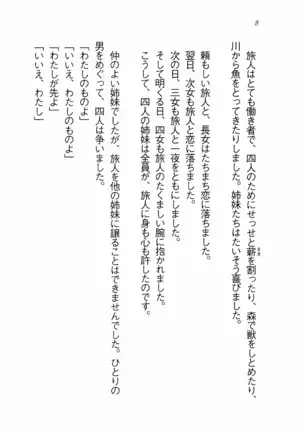 8
旅人はとても働き者で、四人のためにせっせと薪を割ったり、森で獣をしとめたり、
川から魚をとってきたりしました。姉妹たちはたいそう喜びました。
頼もしい旅人と、長女はたちまち恋に落ちました。
翌日、次女も旅人と恋に落ちました。
次の日、三女も旅人と一夜をともにしました。
そして明くる日、四女も旅人のたくましい腕に抱かれました。
こうして、四人の姉妹は全員が、旅人に身も心も許したのです。
仲のよい姉妹でしたが、旅人を他の姉妹に譲ることはできませんでした。ひとりの
男をめぐって、四人は争いました。
「わたしのものよ」
「いいえ、わたしのものよ」
「わたしが先よ」
「いいえ、わたし」